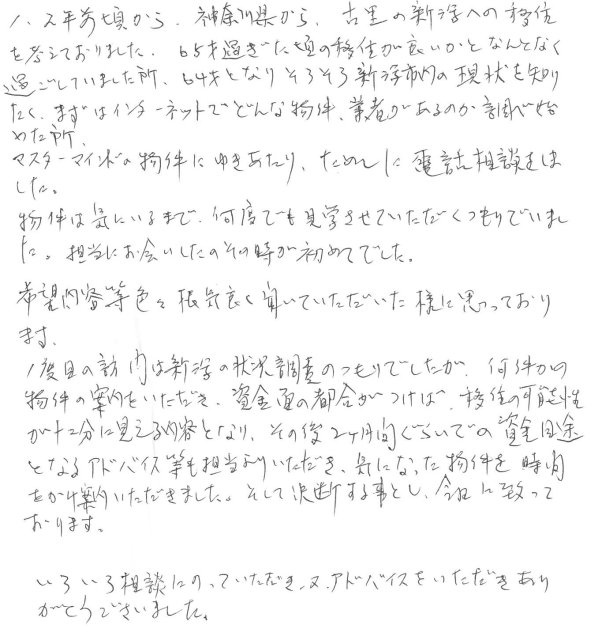 1、2年前頃から、神奈川県から、古里の新潟への移住
を考えておりました。65才過ぎた頃の移住が良いかとなんとなく
過ごしていました所、64才となりそろそろ新潟市内の現状を知り
たく、まずはインターネットでどんな物件、業者があるのか調べ始
めた所、
マスターマインドの物件にゆきあたり、ためしに電話相談をしま
した。
物件は気にいるまで、何度でも見学させていただくつもりでいまし
た。担当にお会いしたのその時が初めてでした。
希望内容等色々根気良く聞いていただいた様に思っており
ます。
1度目の訪問は新潟の状況調査のつもりでしたが、何件かの
物件の案内をいただき、資金面の都合がつけば、移住の可能性
が十二分に見える内容となり、その後2ヶ月間ぐらいでの資金目途
となるアドバイス等も担当よりいただき、気になった物件を時間
をかけ案内いただきました。そして決断する事とし、今日に致って
おります。
いろいろ相談にのっていただき、又、アドバイスをいただきあり
がとうございました。